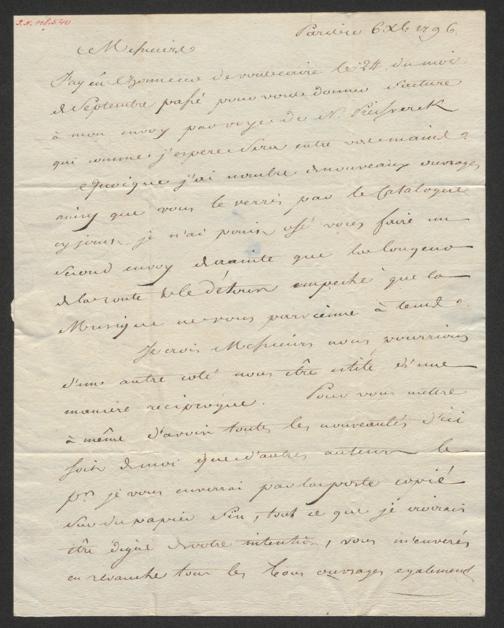 Paris le 6 8b 1796
Messieurs
J'ay eu l'honneur de vous ecrire le 24 du mois
de Septembre passé pour vous donner facture
à mon envoy par voye de N.
qui comme j'espere sera entre vos mains
Quoique j'ai nombre de nouveaux ouvrages
ainsy que vous le verrés par le Catalogue
cy joint je n'ai point osé vous faire un
second envoy de crainte que la longeur
de la route & le détour empeche que la
Musique ne vous parvienne à tems
Je crois Messieurs nous pourrions
d'une autre coté nous être utile d'une
maniére réciproque. Pour vous mettre
à même d'avoir toutes les nouveautés d'ici
soit de moi que d'autres auteurs le
pr. je vous enverrai par la poste copié
sur du papier fin, tout ce que je croirai
être digne de votre intention, vous m'enverés
en revanche tous les bons ouvrages egalement